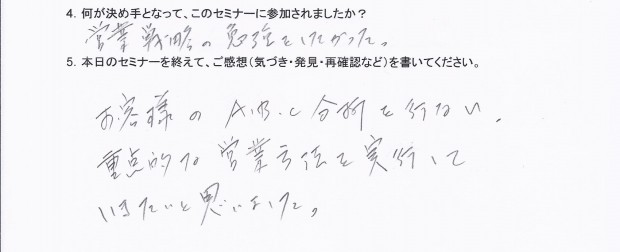 4. 何が決め手となって、このセミナーに参加されましたか？
営業戦略の勉強をしたかった。
5. 本日のセミナーを終えて、ご感想（気づき・発見・再確認など）を書いてください。
お客様のA.B.C分析を行ない、
重点的な営業方法を実行して
いきたいと思いました。